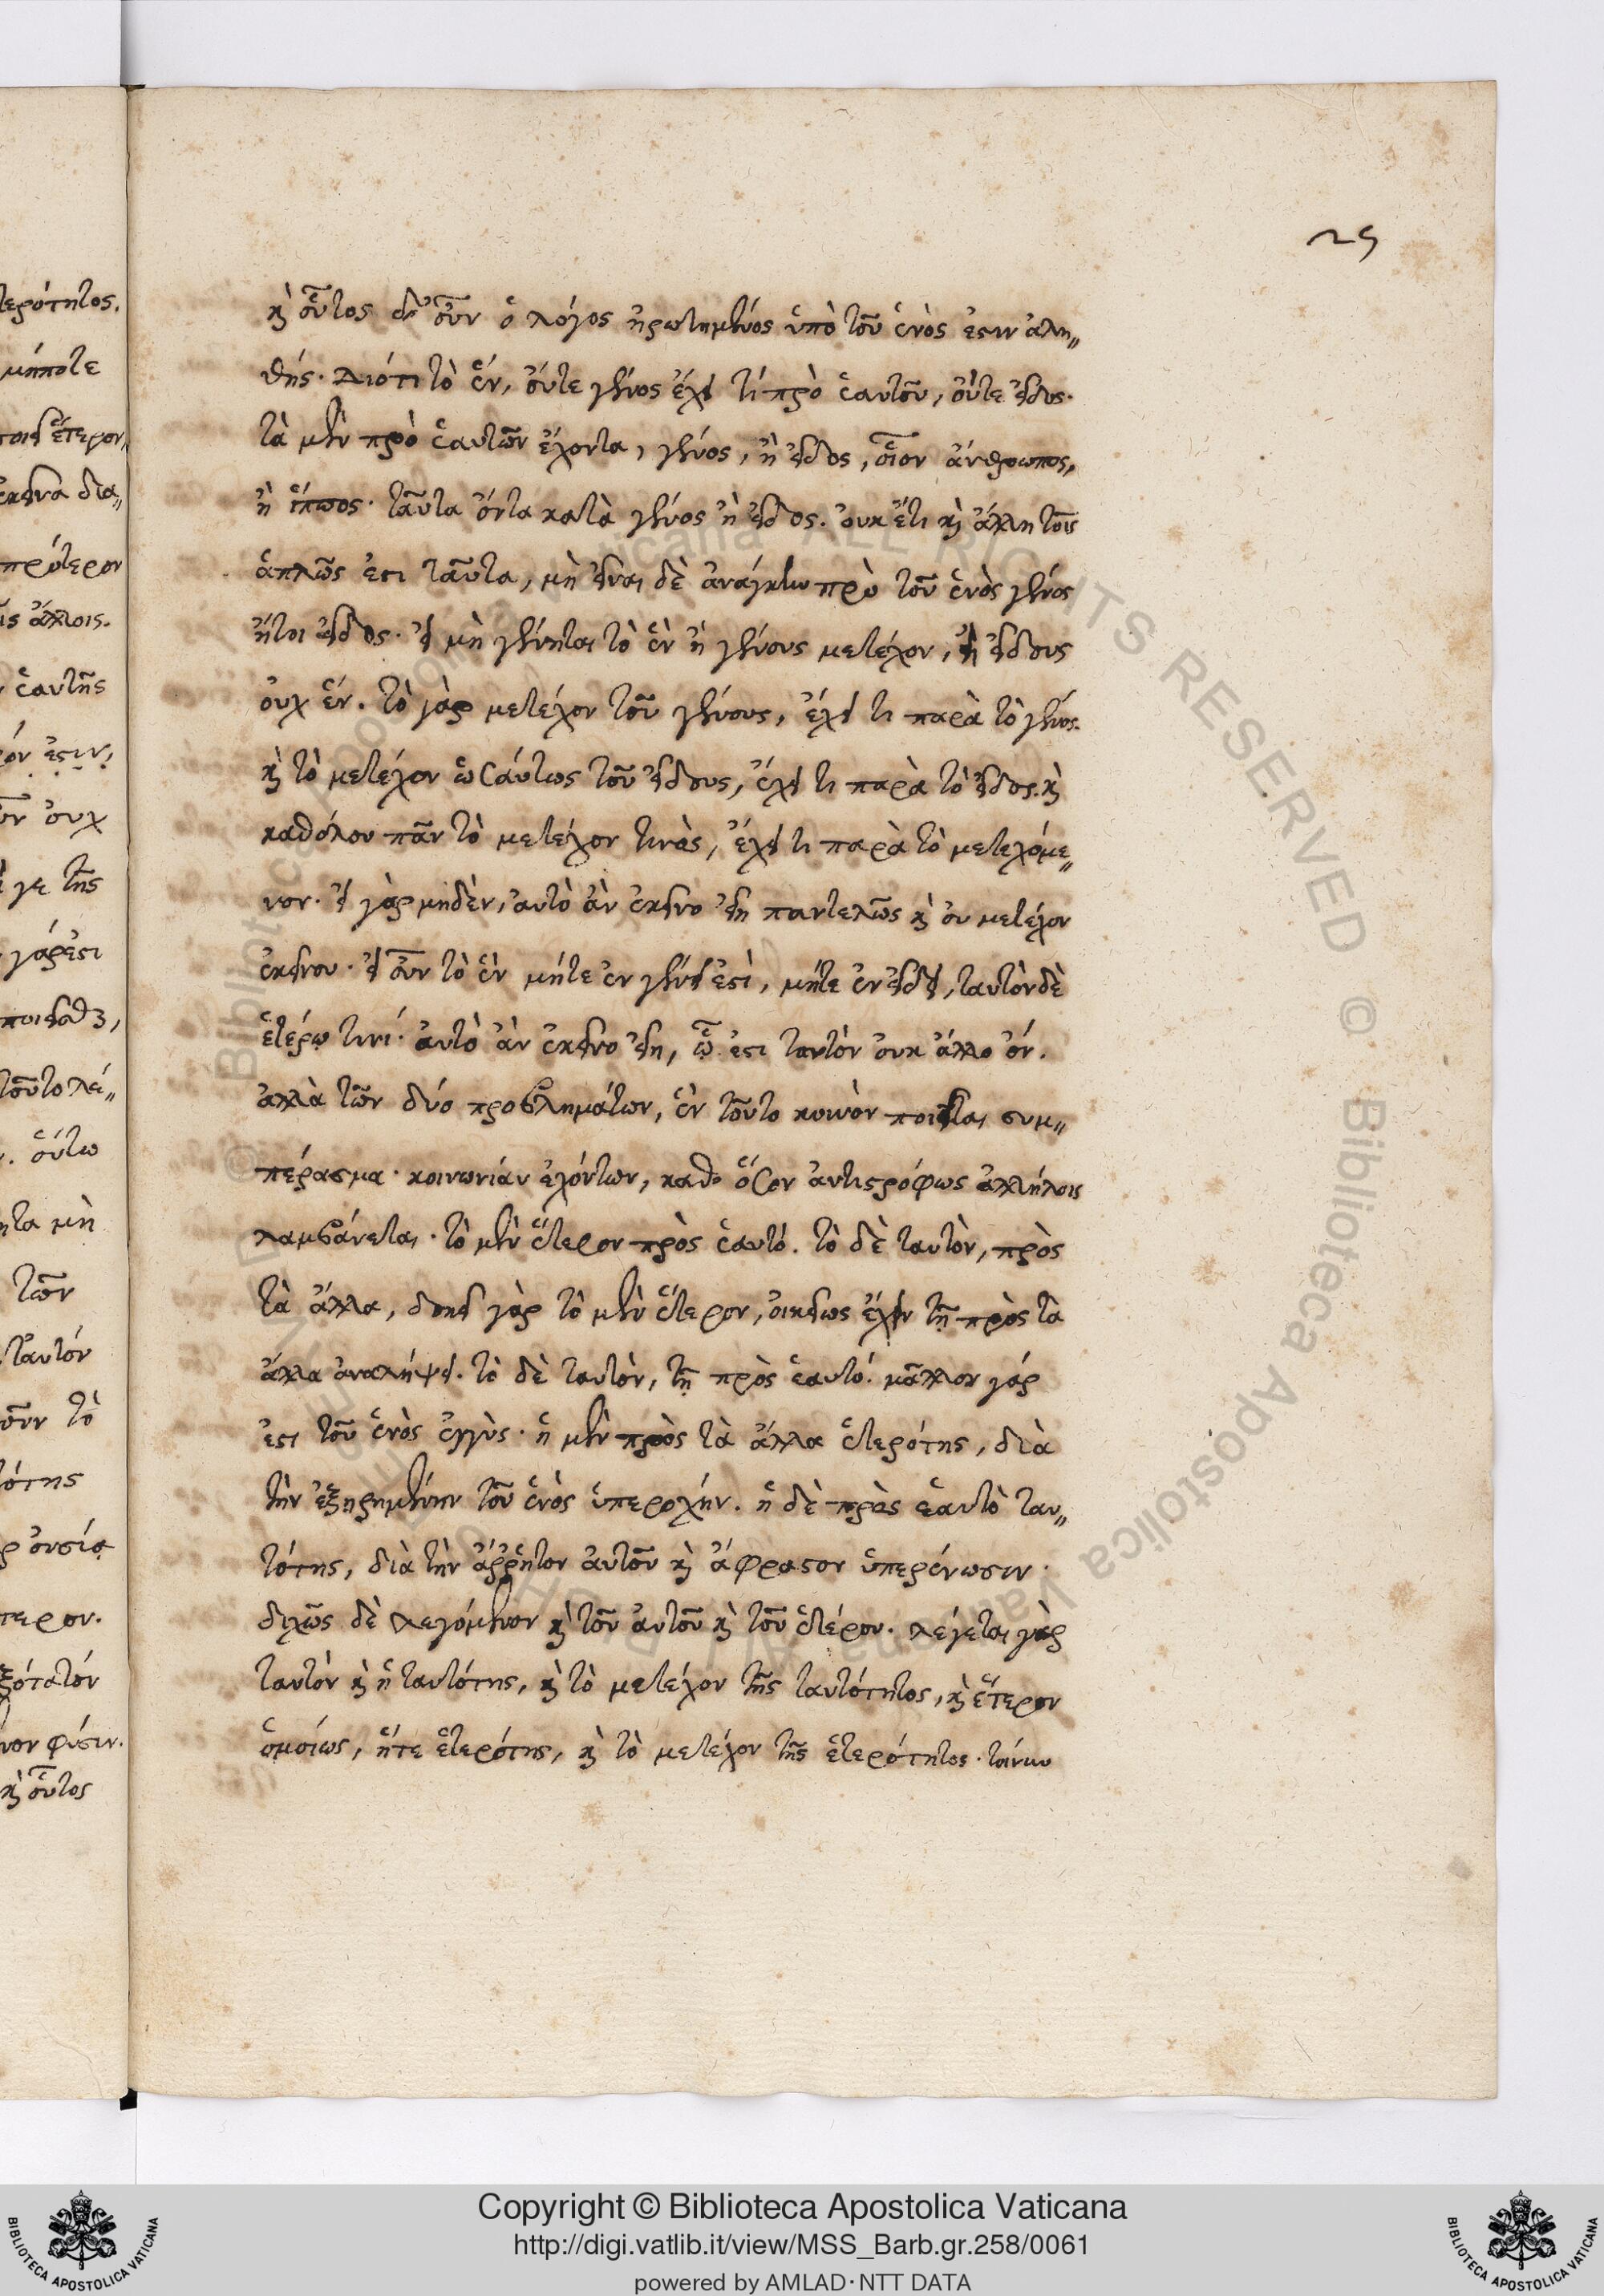 τερότητος.
μήποτε
ποιεῖ ἕτερον,
ἐκεῖνα δια„
πρότερον
ἄλλοις.
ἑαυτῆς
ἐστιν,
οὐχ
γε τῆς
γάρ ἐστι
ποιεῖσθαι,
τοῦτο λεί„
οὕτω
μὴ
τῶν
ταυτόν
οὖν τὸ
ότης
οὐσία
τερον.
φύσιν.
καὶ οὗτος
25
καὶ οὗτος δ' οὖν ὁ λόγος ἠρωτημένος ὑπὸ τοῦ ἑνὸς ἐστιν ἀλη„
θής. διότι τὸ ἕν, οὔτε γένος ἔχει τί πρὸ ἑαυτοῦ, οὔτε εἶδος.
τὰ μὲν πρὸ ἑαυτῶν ἔχοντα, γένος, ἢ εἶδος, οἷον ἄνθρωπος,
ἢ ἵππος. ταῦτα ὄντα κατὰ γένος ἢ εἶδος. οὐκ ἔτι καὶ ἄλλη τοῖς
ἁπλῶς ἐστι ταῦτα, μὴ εἶναι δὲ ἀνάγκη πρὸ τοῦ ἑνὸς γένος
ἤτοι εἶδος. εἰ μὴ γένηται τὸ ἓν ἢ γένους μετέχον, ἢ εἴδους
οὐχ ἕν. τὸ γὰρ μετέχον τοῦ γένους, ἔχει τι παρὰ τὸ γένος.
καὶ τὸ μετέχον ὡσαύτως τοῦ εἴδους, ἔχει τι παρὰ τὸ εἶδος. καὶ
καθόλου πᾶν τὸ μετέχον τινὸς, ἔχει τι παρὰ τὸ μετεχόμε„
νον. εἰ γὰρ μηδὲν, αὐτὸ ἂν ἐκεῖνο εἴη παντελῶς καὶ οὐ μετέχον
ἐκείνου. εἰ οὖν τὸ ἓν μήτε ἐν γένει ἐστὶ, μήτε ἐν εἴδει, ταυτὸν δὲ
ἑτέρῳ τινί. αὐτὸ ἂν ἐκεῖνο εἴη, ᾧ ἐστι ταυτὸν οὐκ ἄλλο ὄν.
ἀλλὰ τῶν δύο προβλημάτων, ἓν τοῦτο κοινὸν ποιεῖται συμ„
πέρασμα. κοινωνίαν ἐχόντων, καθ' ὅσον ἀντιστρόφως ἀλλήλοις
λαμβάνεται. τὸ μὲν ἕτερον πρὸς ἑαυτό. τὸ δὲ ταυτὸν, πρὸς
τὰ ἄλλα, δοκεῖ γὰρ τὸ μὲν ἕτερον, οἰκείως ἔχειν τῇ πρὸς τὰ
ἄλλα ἀναλήψει. τὸ δὲ ταυτὸν, τῇ πρὸς ἑαυτό. μᾶλλον γάρ
ἐστι τοῦ ἑνὸς ἐγγὺς. ἡ μὲν πρὸς τὰ ἄλλα ἑτερότης, διὰ
τὴν ἐξῃρημένην τοῦ ἑνὸς ὑπεροχήν. ἡ δὲ πρὸς ἑαυτὸ ταυ„
τότης, διὰ τὴν ἄῤῥητον αὐτοῦ καὶ ἄφραστον ὑπερένωσιν.
διχῶς δὲ λεγόμενον καὶ τοῦ αὐτοῦ καὶ τοῦ ἑτέρου. λέγεται γὰρ
ταυτὸν καὶ ἡ ταυτότης, καὶ τὸ μετέχον τῆς ταυτότητος, καὶ ἕτερον
ὁμοίως, ἥτε ἑτερότης, καὶ τὸ μετέχον τῆς ἑτερότητος. τοίνυν
© Biblioteca Apostolica Vaticana ALL RIGHTS RESERVED © Biblioteca Apostolica Vaticana
Copyright © Biblioteca Apostolica Vaticana
http://digi.vatlib.it/view/MSS_Barb.gr.258/0061
powered by AMLAD·NTT DATA
BIBLIOTECA APOSTOLICA VATICANA
BIBLIOTECA APOSTOLICA VATICANA